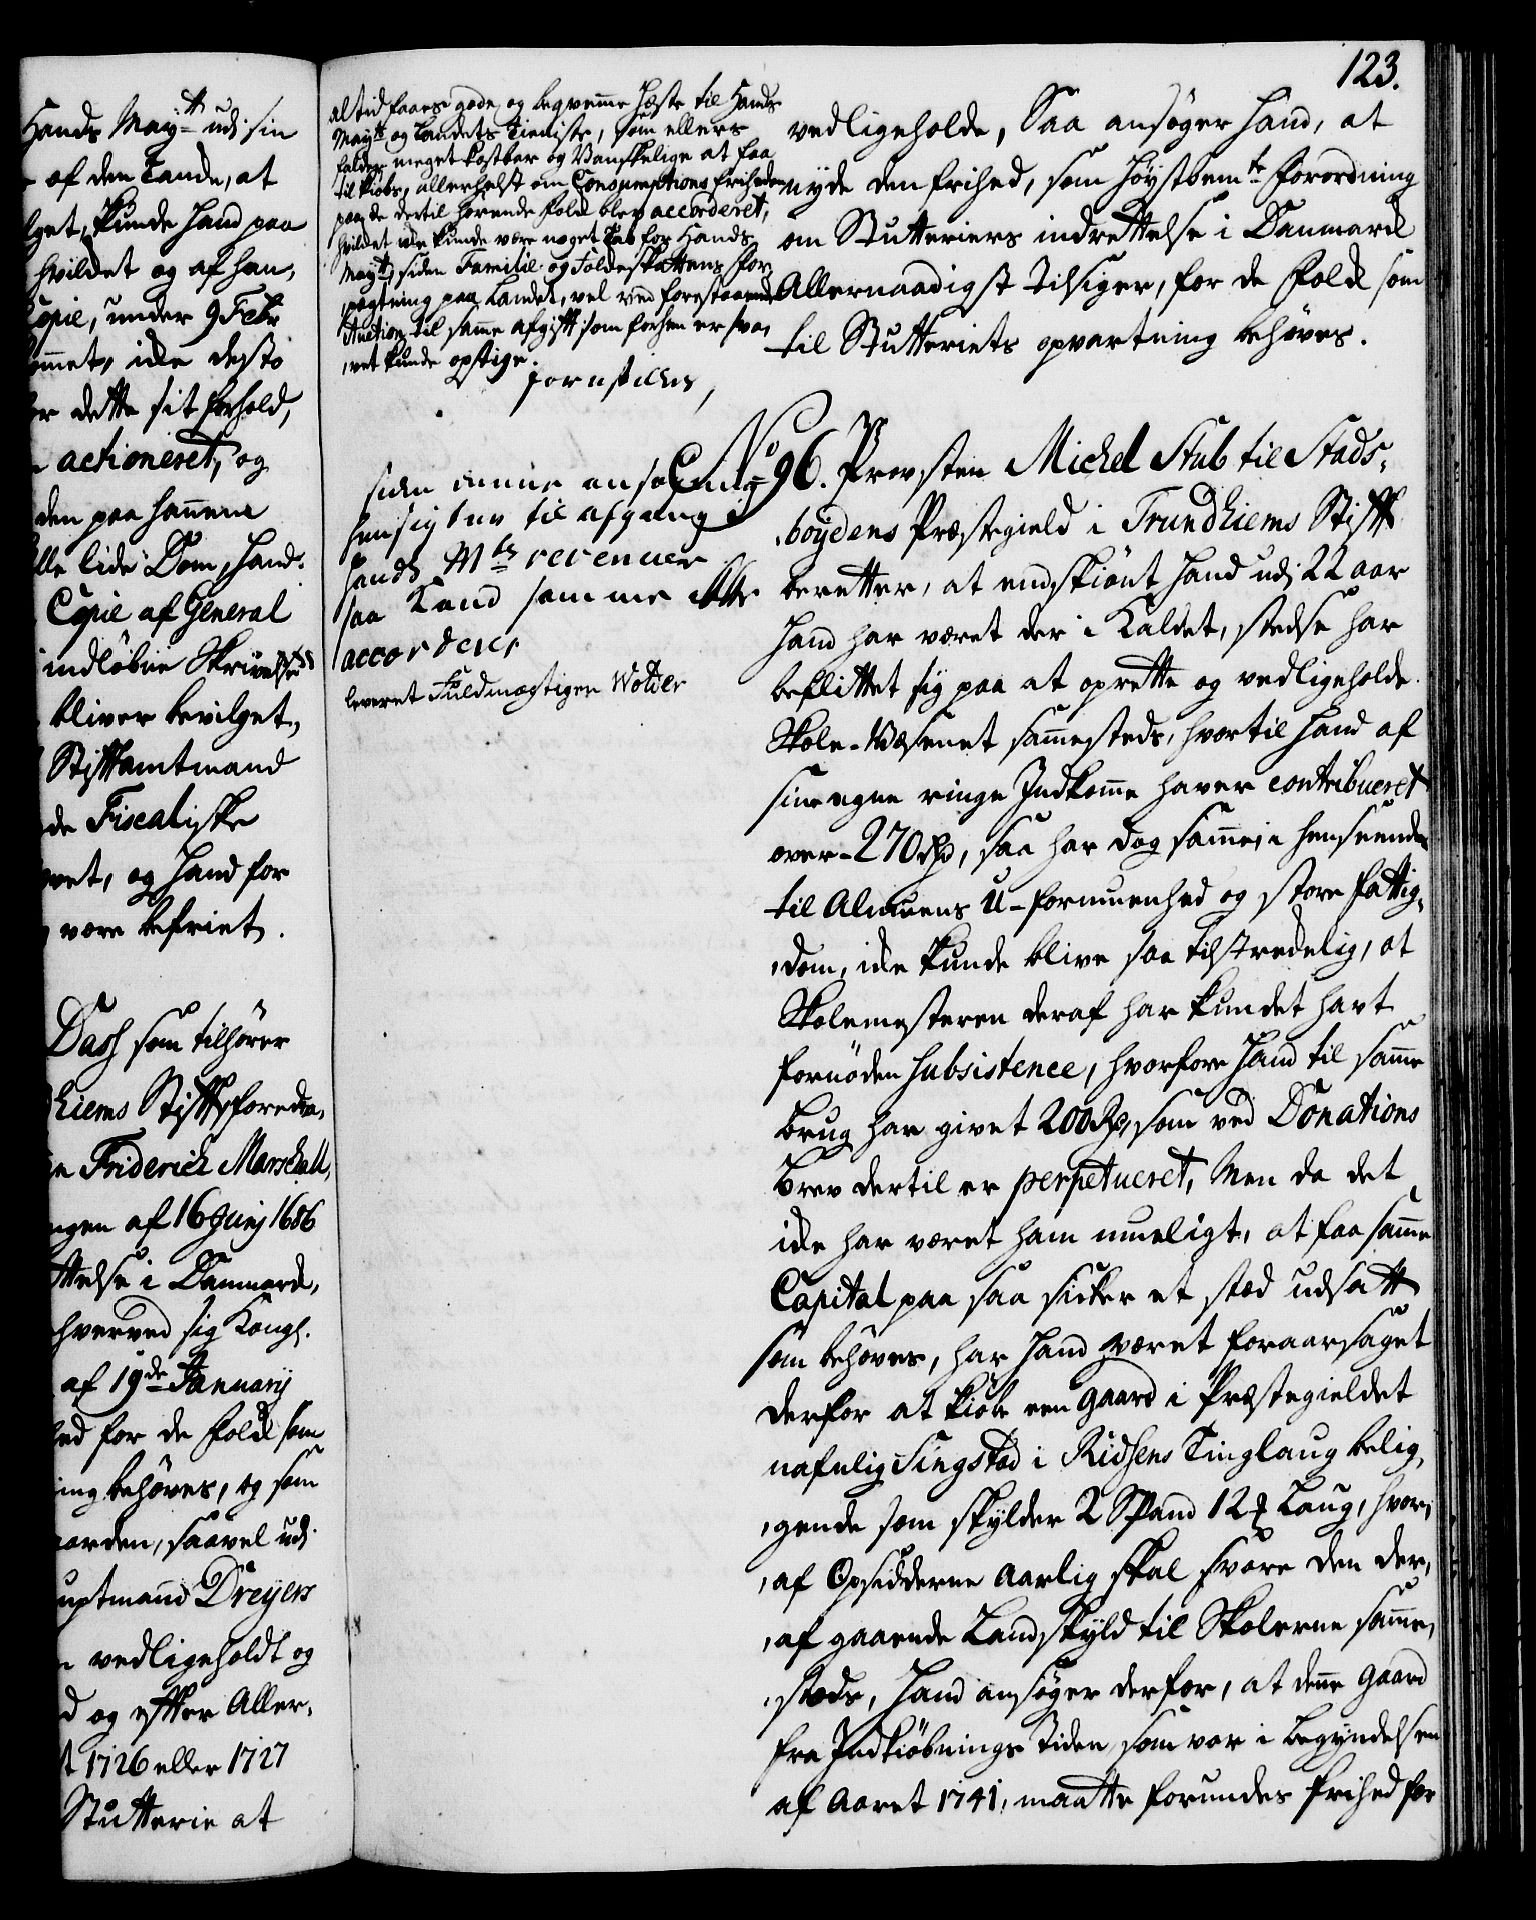 Hands Maytt udi sin
af den Tande, at
get, kunde hand paa
hvilcket og af han,
Copie, under 9 Febr
ommet, icke desto
or dette sit forhold,
actioneret, og
den paa hannem
lide Dom, hand
Copie af General
indløbne Skrivelse
bliver bevilget,
Stiftamtmand
de Fiscaliske
vet, og hand for
være befriet.
Dass som tilhører
hiems Stift, foredra,
Friderich Marschall,
ngen af 16 Junij 1686
ttelse i Danmarck,
hverved sig Kongl.
af 19de January
hed for de folck som
ing behøves, og som
aarden, saavel udi
uptmand Dreyers
vedligeholdt og
d og efter Aller,
t 1726 eller 1727
Stutterie at
123.
altid faaes gode og beqvemme Heste til Hands
Maytts og Landets Tieniste, som ellers
falder meget kostbar og Vanskelige at faa
til kiøbs, allerhelst om Consumptions friheden
paa de dertil hørende folck blev accorderet,
hvilcket icke kunde være noget Tab for Hands
Maytt siden Familie og Folckeskattens for,
pagtning paa Landet, vel ved forestaaende
Auction til samme afgift som forhen er sva,
ret kunde opstige.
forestilles,
siden denne ansøgning
hensigter til afgang i
hands Mts revenuer
saa Kand samme icke
accorderes
leveret Fuldmægtigen Wölder
vedligeholde, Saa ansøger hand, at
nyde den frihed, som høystbemte Forordning
om Stutteriers indrettelse i Danmarck
Allernaadigst tilsiger, for de Folck som
til Stutteriets opvartning behøves.
No 96. Provsten Michel Stub til Stads,
,boydens Præstegield i Trundhiems Stift
beretter, at endskiönt hand udi 22 aar
hand har været der i Kaldet, stedse har
beflittet sig paa at oprette og vedligeholde
Skole-Væsenet sammesteds, hvortil hand af
sine egne ringe Indkomme haver contribueret
over 270 rd, saa har dog samme i henseende
til Almuens U-formuenhed og store fattig,
,dom, icke kunde blive saa tilstrekelig, at
Skolemesteren deraf har kundet havt
fornöden Subsistence, hvorfore hand til samme
brug har givet 200 Rd, som ved Donations
brev dertil er perpetueret, Men da det
icke har været ham mueligt, at faa samme
Capital paa saa sicker et sted udsatt
som behöves, har hand været foraarsaget
derfor at kiöbe een Gaard i Præstegieldet
nafnlig Singstad i Ridsens Tinglaug belig,
,gende som skylder 2 Spand 12 Laug, hvor,
,af Opsidderne Aarlig skal svare den der,
,af gaaende Landskyld til Skolerne samme,
,steds, hand ansöger derfor, at denne Gaard
fra Indkiöbnings Tiden, som var i begyndelsen
af Aaret 1741, maatte forundes frihed for